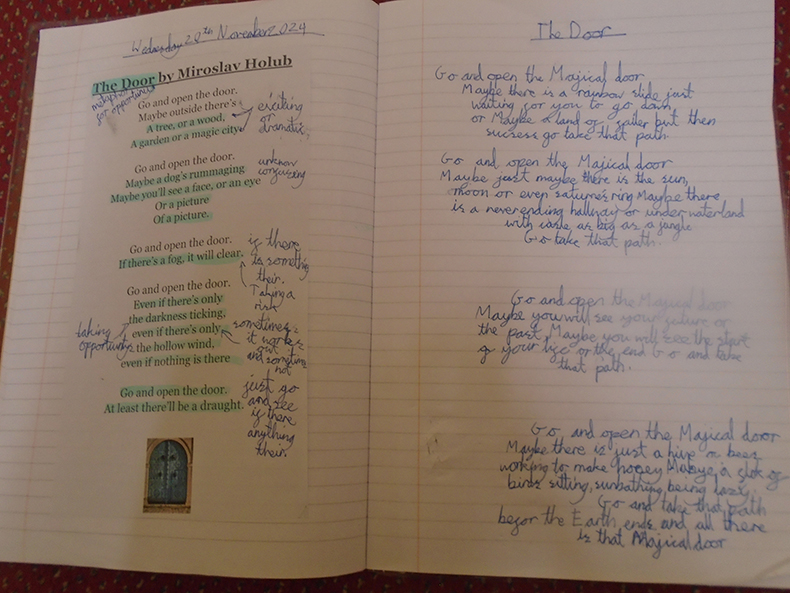 Wednesday 20th November 2024
The Door by Miroslav Holub
metaphor
for opportunity
Go and open the door.
Maybe outside there's
A tree, or a wood,
A garden or a magic city.
exciting
or
dramatic,
Go and open the door.
Maybe a dog's rummaging
Maybe you'll see a face, or an eye
Or a picture
Of a picture.
unknow
confussing
Go and open the door.
If there's a fog, it will clear.
if there
is something
their.
Taking a
risk
Go and open the door.
Even if there's only
the darkness ticking,
even if there's only
the hollow wind,
even if nothing is there
taking
sometimes
it works
out
and sometime
not
Go and open the door.
At least there'll be a draught.
just go
and see
if there
anything
their.
The Door
Go and open the Majical door
Maybe there is a rainbow slide just
waiting for you to go down
or Maybe a land of but then
success go take that path
Go and open the Majicall door
Maybe just maybe there is the sun,
moon or even saturns ring Maybe there
is a never ending hallway or under waterland
with as big as a jangle
Go take that path.
Go and open the Majical door
Maybe you will see your future or
the past, Maybe you will see the start
of your life or the end Go and take
that path.
Go and open the Majical door
Maybe there is just a hive of bees
working to make honey a of
sitting, sunbathing, being lazy.
Go and take that path
befor the Earth ends and all there
is that Majical door